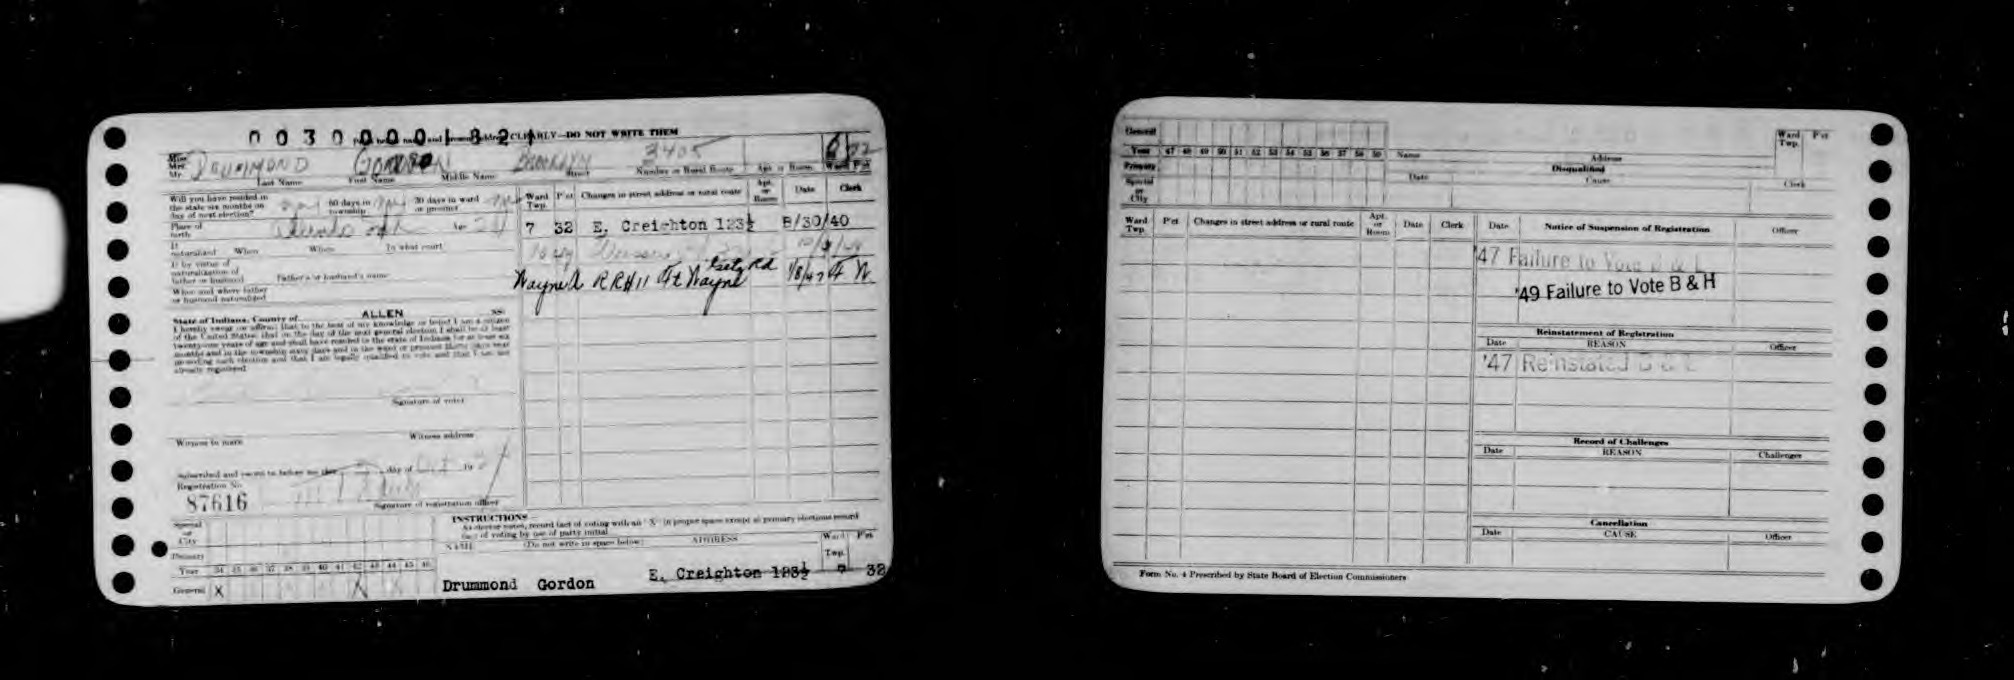 00300001821
CLEARLY—DO NOT WRITE THEM
Miss
Mrs.
Mr. DRUMMOND GORDON BROOKLYN 3405
Last Name First Name Middle Name Street Number or Rural Route Apt. or Room Ward Pct
Will you have resided in
the state six months on
day of next election? 60 days in
township 30 days in ward
or precinct
Place of
birth Age
If
naturalized When Where In what court
If by virtue of
naturalization of
father or husband Father's or husband's name
When and where father
or husband naturalized
State of Indiana, County of ALLEN SS:
I hereby swear or affirm that to the best of my knowledge or belief I am a citizen
of the United States; that on the day of the next general election I shall be at least
twenty-one years of age and shall have resided in the state of Indiana for at least six
months and in the township sixty days and in the ward or precinct thirty days next
preceding such election and that I am legally qualified to vote and that I am not
already registered.
Signature of voter
Witness to mark Witness address
Subscribed and sworn to before me this day of 19
Registration No.
87616
Signature of registration officer
Ward
Twp. P'ct Changes in street address or rural route Apt.
or
Room Date Clerk
7 32 E. Creighton 123½ 8/30/40
Wayne A RR#11 Ft Wayne Getz Rd 1/8/47
Special
or
City
Primary
Year 34 35 36 37 38 39 40 41 42 43 44 45 46
General X X
INSTRUCTIONS
As elector votes, record fact of voting with an "X" in proper space except at primary elections record
fact of voting by use of party initial
NAME (Do not write in space below) ADDRESS Ward
Twp. P'ct
Drummond Gordon E. Creighton 123½ 7 32
General
Year 47 48 49 50 51 52 53 54 55 56 57 58 59
Primary
Special
or
City
Name Address Ward
Twp. P'ct
Disqualified
Date Cause Clerk
Ward
Twp. P'ct Changes in street address or rural route Apt.
or
Room Date Clerk
Date Notice of Suspension of Registration Officer
'47 Failure to Vote B & L
'49 Failure to Vote B & H
Reinstatement of Registration
Date REASON Officer
'47 Reinstated B & L
Record of Challenges
Date REASON Challenger
Cancellation
Date CAUSE Officer
Form No. 4 Prescribed by State Board of Election Commissioners